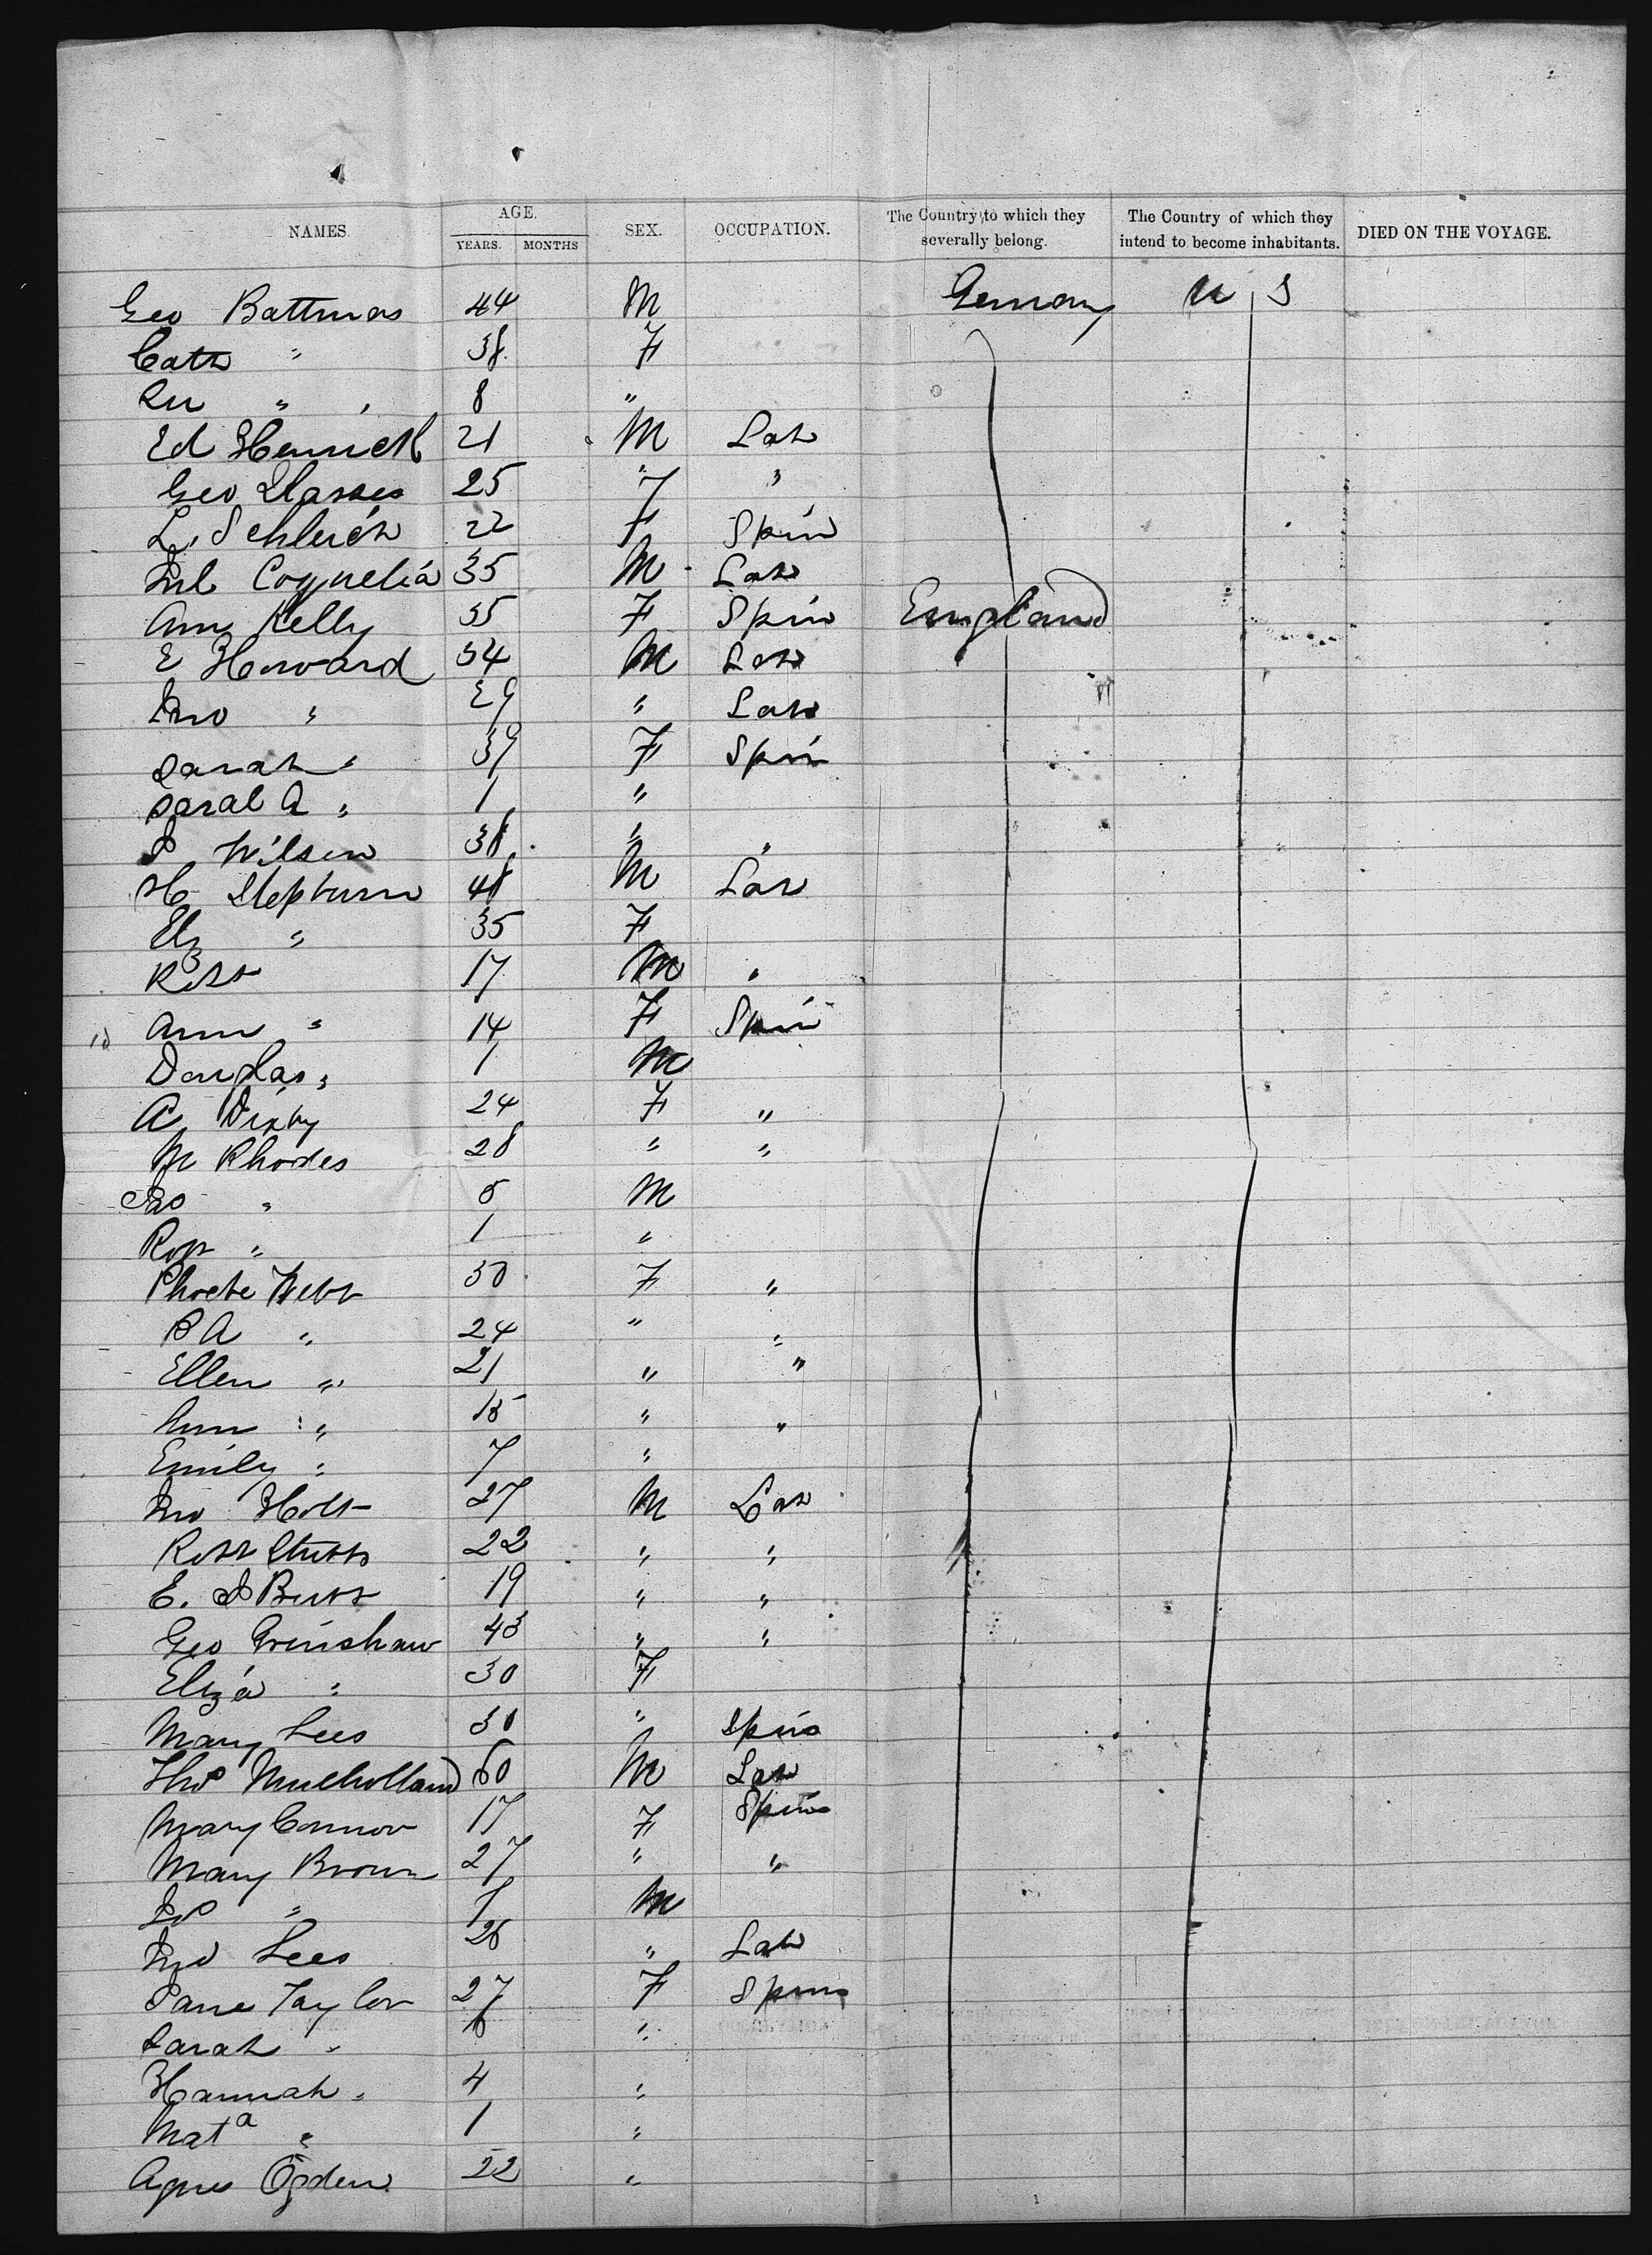 NAMES. AGE. YEARS. MONTHS SEX. OCCUPATION. The Country to which they severally belong. The Country of which they intend to become inhabitants. DIED ON THE VOYAGE.
Geo 44 M Germany U S
Cath " 38 F
" 8 "
Ed 21 M Lab
Geo 25 F "
L. 22 F Spin
35 M Lab
Ann Kelly 35 F Spin England
E Howard 54 M Lab
Jno " 29 " Lab
Sarah " 39 F Spin
Sarah A " 1 "
Wilson 38 " "
H Hepburn 48 M Lab
Elz " 35 F
Robt 17 M "
Ann " 14 F Spin
Douglas " 1 M
A Dixby 24 F "
M Rhodes 28 " "
" M
Robt " 1 "
Phoebe Webb 50 F "
" 24 " "
Ellen " 21 " "
Ann " 15 " "
Emily " 7 "
Jno Holt 27 M Lab
Robt Stubbs 22 " "
E. 19 " "
Geo Grinshaw 43 " "
Eliza " 30 F
Mary Lees 30 " Spin
Thos Mulholland 60 M Lab
Mary Connor 17 F Spin
Mary Brown 27 " "
" M
Jno Lees 26 " Lab
Jane Taylor 27 F Spin
Sarah " "
Hannah " 4 "
Mat a " 1 "
Agnes Ogden 22 "